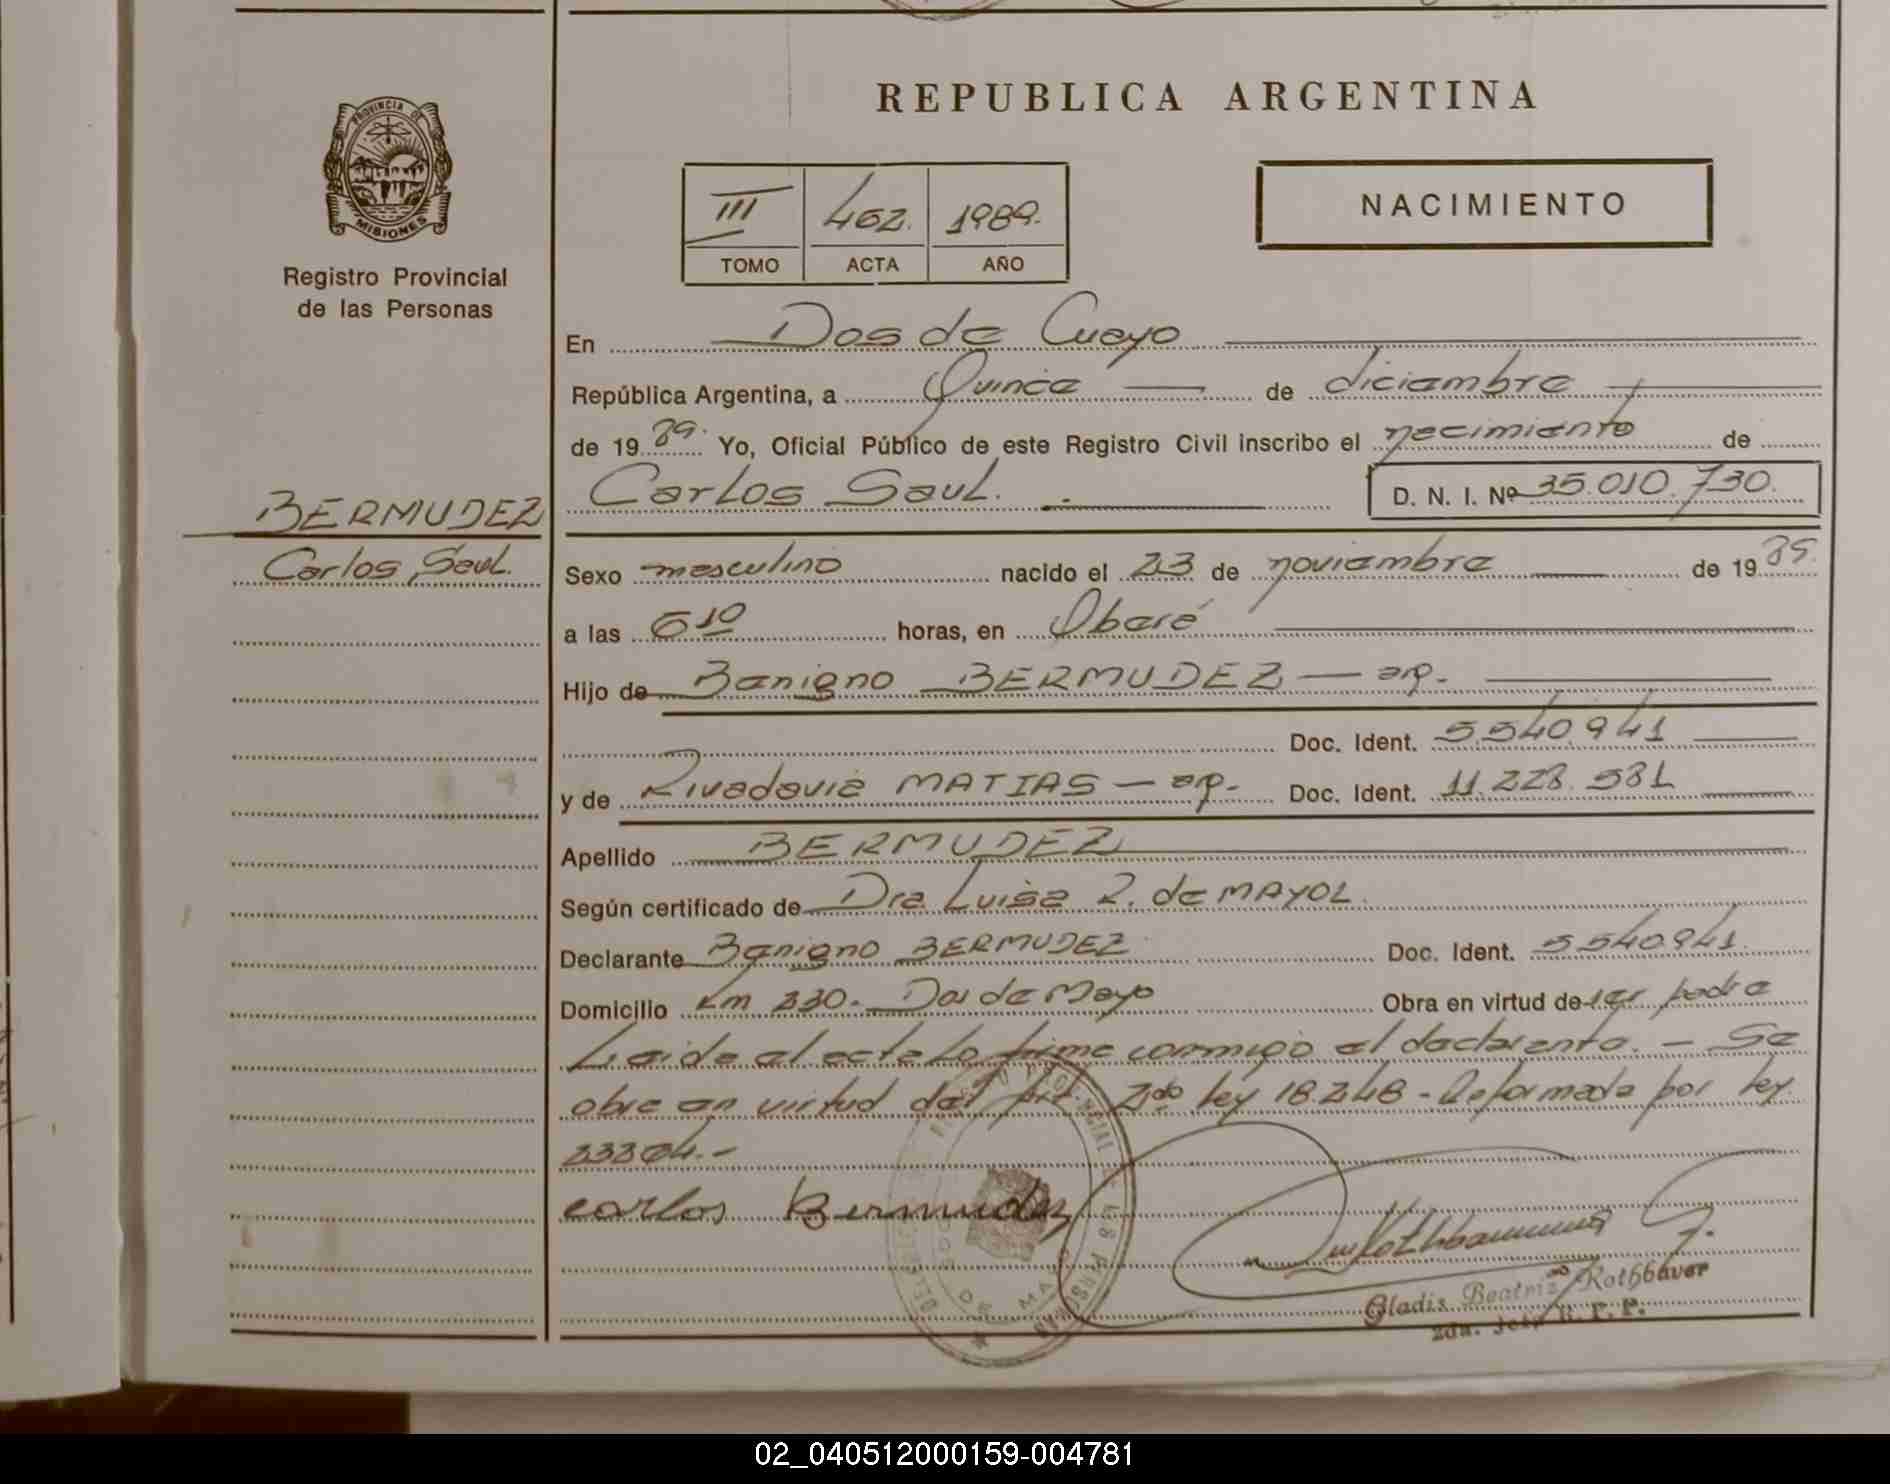 REPUBLICA ARGENTINA
PROVINCIA DE MISIONES
Registro Provincial
de las Personas
III 462. 1989.
TOMO ACTA AÑO
NACIMIENTO
En Dos de Mayo
República Argentina, a Quince de diciembre
de 1989. Yo, Oficial Público de este Registro Civil inscribo el nacimiento de
Carlos Saul. D. N. I. Nº 35.010.730.
BERMUDEZ
Carlos Saul.
Sexo masculino nacido el 23 de noviembre de 1989.
a las 6 10 horas, en Oberá
Hijo de Benigno BERMUDEZ — arg.
Doc. Ident. 5.540.941
y de Rivadavia MATIAS — arg. Doc. Ident. 11.228.581
Apellido BERMUDEZ
Según certificado de Dra. Luisa R. de MAYOL.
Declarante Benigno BERMUDEZ Doc. Ident. 5.540.941.
Domicilio Km 230. Dos de Mayo Obra en virtud de ser padre
Leida el acta la firma conmigo el declarante. — Se
obra en virtud del Art. 2do ley 18.248 - Reformada por ley
23264.-
carlos Bermudez
Gladis Beatriz Rothbaver
2da. Jefe R. P. P.
02_040512000159-004781